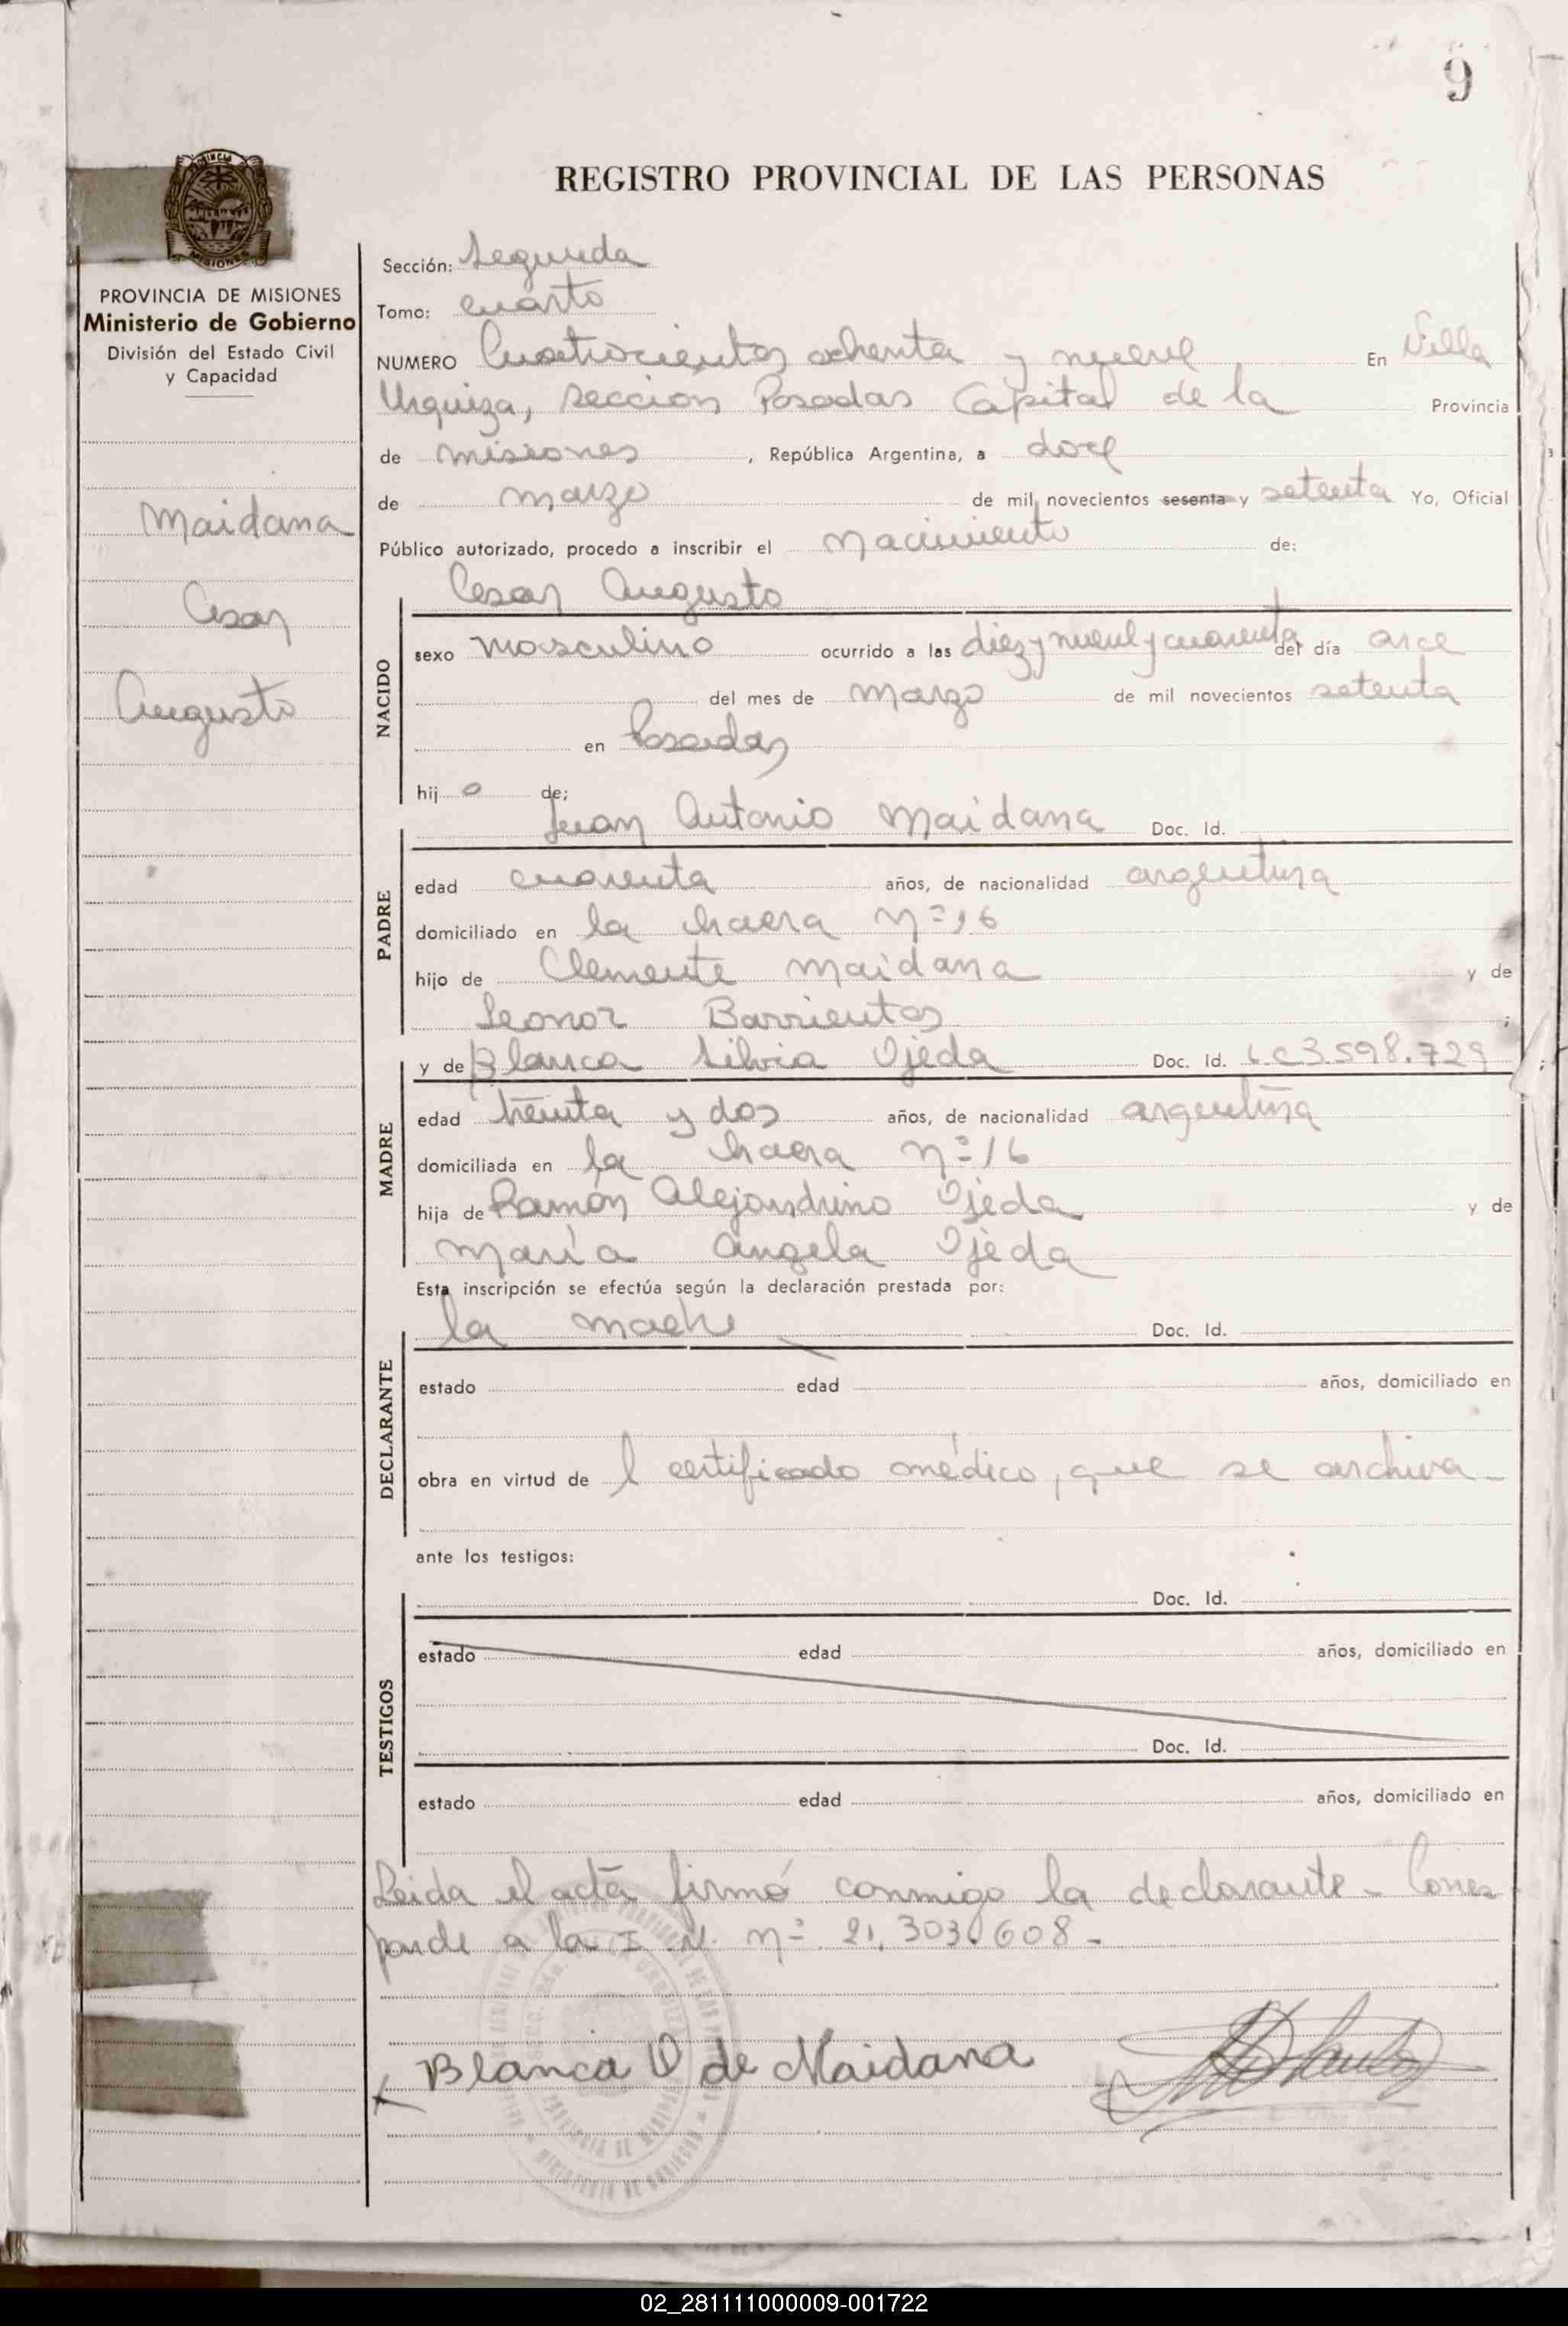 9
REGISTRO PROVINCIAL DE LAS PERSONAS
PROVINCIA DE MISIONES
Ministerio de Gobierno
División del Estado Civil
y Capacidad
Maidana
Cesar
Augusto
Sección: Segunda
Tomo: cuarto
NUMERO Cuatrocientos ochenta y nueve En Villa
Urquiza, sección Posadas Capital de la Provincia
de misiones, República Argentina, a doce
de marzo de mil novecientos sesenta y setenta Yo, Oficial
Público autorizado, procedo a inscribir el nacimiento de:
Cesar Augusto
NACIDO
sexo masculino ocurrido a las diez y nueve y cuarenta del día once
del mes de marzo de mil novecientos setenta
en Posadas
hijo de;
Juan Antonio Maidana Doc. Id.
PADRE
edad cuarenta años, de nacionalidad argentina
domiciliado en la chacra nº 16
hijo de Clemente Maidana y de
Leonor Barrientos;
y de Blanca Silvia Ojeda Doc. Id. LC3.598.729
MADRE
edad treinta y dos años, de nacionalidad argentina
domiciliada en la chacra nº 16
hija de Ramón Alejandrino Ojeda y de
María Angela Ojeda
Esta inscripción se efectúa según la declaración prestada por:
la madre Doc. Id.
DECLARANTE
estado edad años, domiciliado en
obra en virtud de l certificado médico, que se archiva-
ante los testigos:
Doc. Id.
TESTIGOS
estado edad años, domiciliado en
Doc. Id.
estado edad años, domiciliado en
Leida el acta firmó conmigo la declarante - Corres
ponde a la I. N. nº 21.303.608-
Blanca O de Maidana
02_281111000009-001722